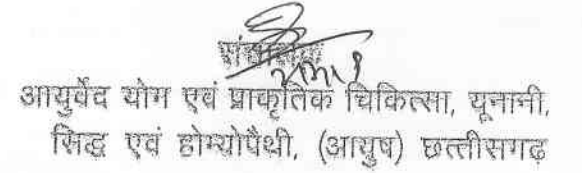 संचालक
आयुर्वेद योग एवं प्राकृतिक चिकित्सा, यूनानी,
सिद्ध एवं होम्योपैथी, (आयुष) छत्तीसगढ़